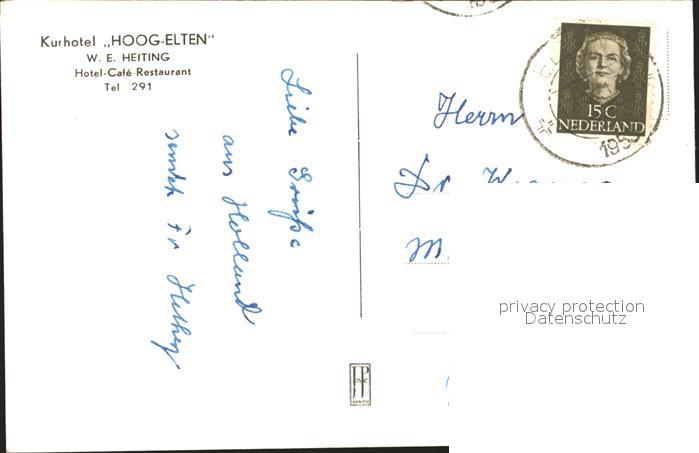 Kurhotel „HOOG-ELTEN"
W. E. HEITING
Hotel-Café-Restaurant
Tel 291
Liebe Grüße
aus Holland
sendet Ir
Herrn
Dr
15 C
NEDERLAND
195
privacy protection
Datenschutz